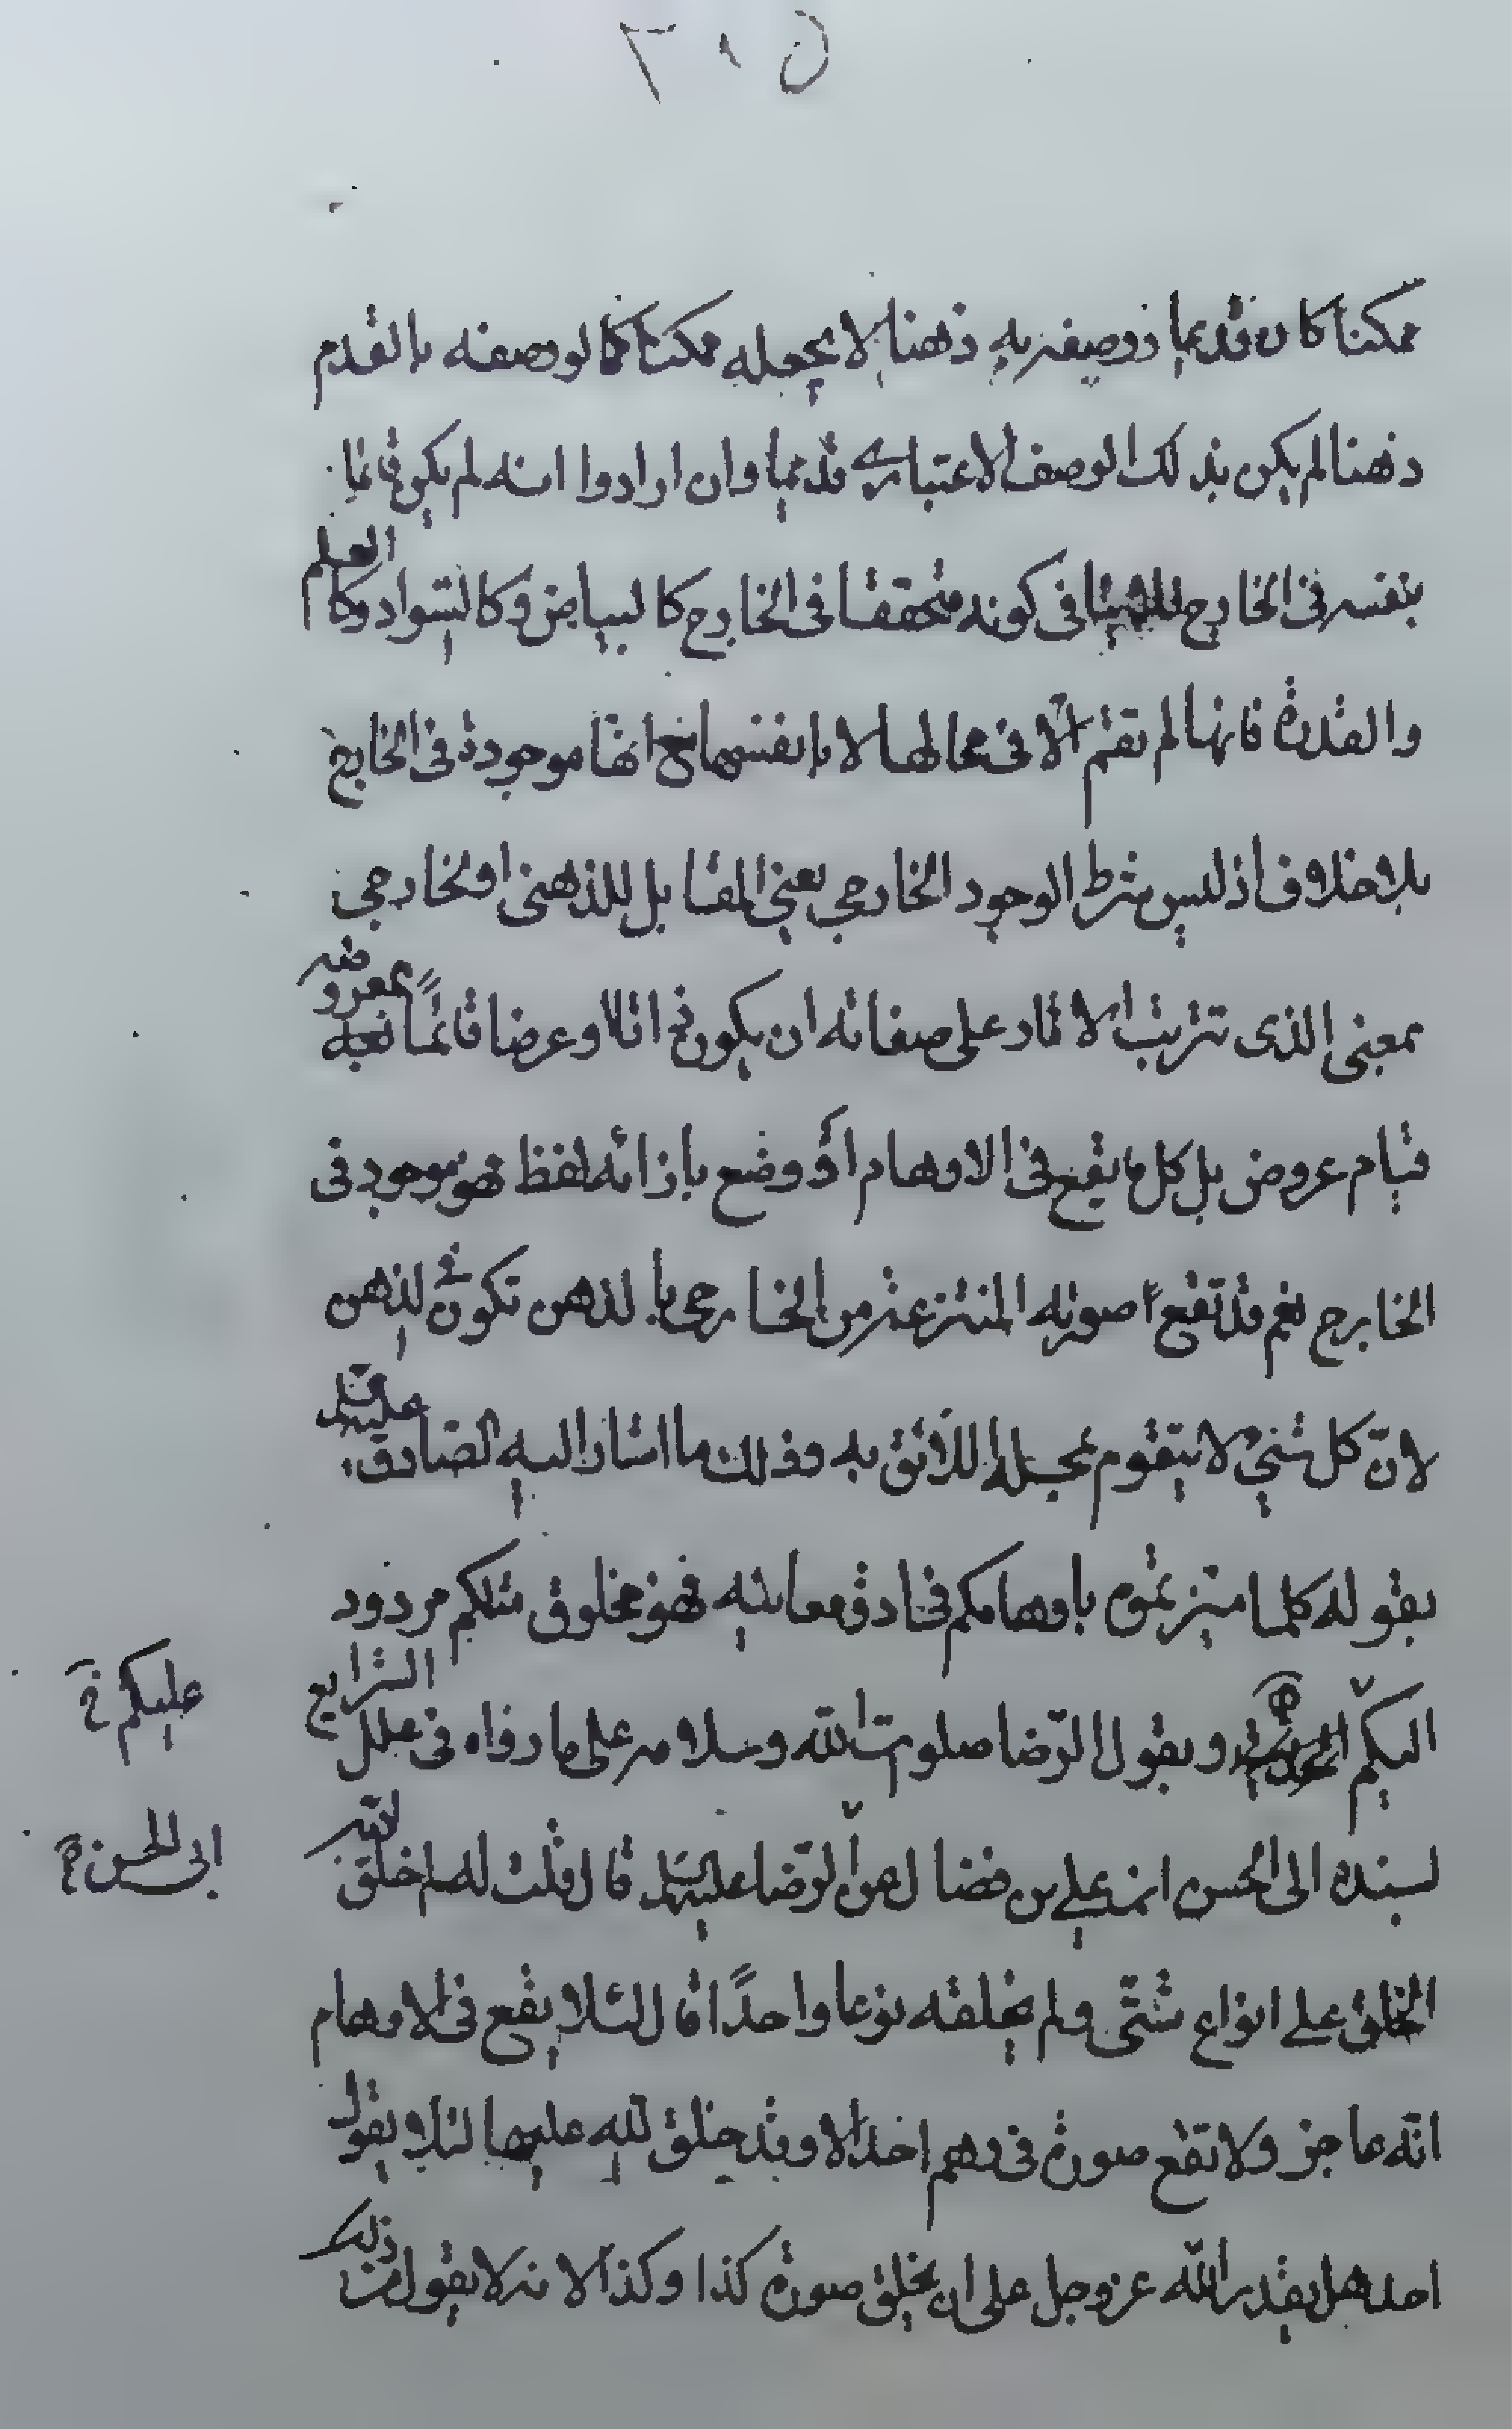 ٣٠٥
ممكنا كان قديما ووصفه به ذهنا لا يجعله ممكنا كما لو وصفه بالقدم
ذهنا لم يكن بذلك الوصف الاعتباري قديما وان ارادوا انه لم يكن قائما
بنفسه في الخارج فلا ينافي كونه متحققا في الخارج كالبياض وكالسواد وكالعلم
والقدرة فانها لم تقم الّا في محالها لا بانفسها مع انها موجودة في الخارج
بلا خلاف اذ ليس شرط الوجود الخارجي يعني المقابل للذهني او الخارجي
بمعنى الذي تترتب الاثار على صفاته ان يكون ذاتا او عرضا قائماً بمعروضه
قيام عروض بل كل ما يقع في الاوهام أو وضع بازائه لفظ فهو موجود في
الخارج نعم قد تقع صورته المنتزعة من الخارجي بالذهن تكون في الذهن
لانّ كل شيء لا يتقوم بمحله اللائق به وذلك ما اشار اليه الصادق عليه السلم
بقوله كلما ميزتموه باوهامكم في ادق معانيه فهو مخلوق مثلكم مردود
اليكم وبقول الرّضا صلوات الله وسلامه على ما رواه في علل الشرايع
بسنده الى الحسن ابن علي بن فضال عن الرّضا عليه السلم قال قلت له لم خلق الله
الخلق على انواع شتّى ولم يخلقه نوعا واحدًا قال لئلا يقع في الاوهام
انّه عاجز ولا تقع صورة في وهم احد الا وقد خلق الله عليها لئلا يقول
احد هل يقدر الله عز وجل على ان يخلق صورة كذا وكذا لانه لا يقول من ذلك
عليكم خ
ابى الحسن خ